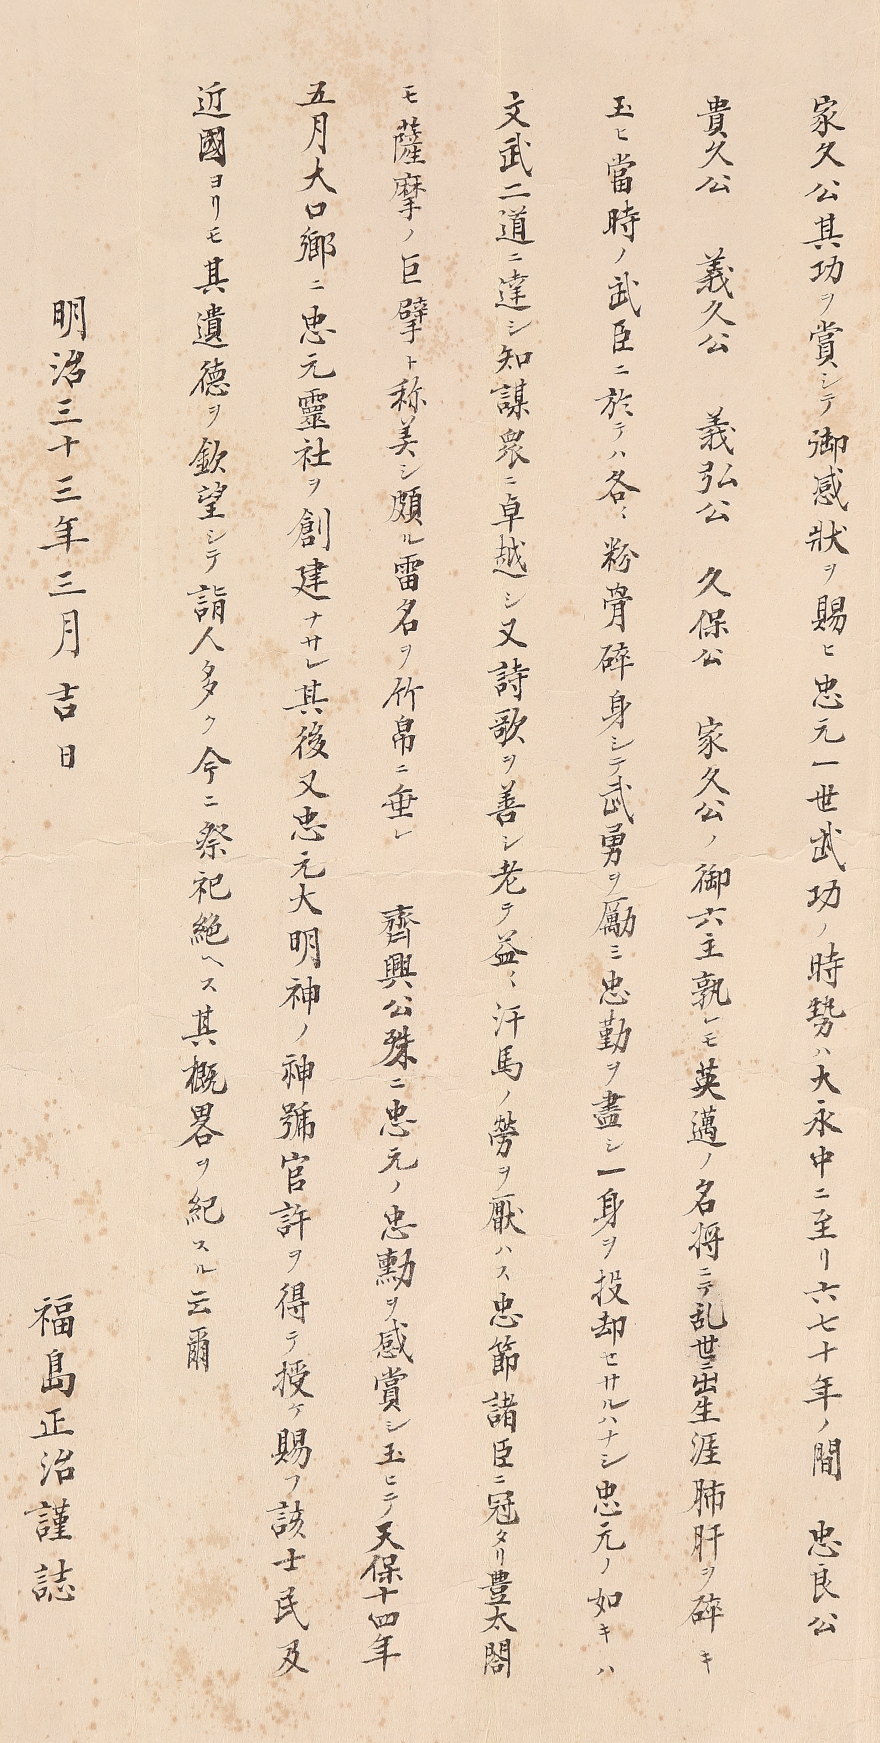 家久公其功ヲ賞シテ御感狀ヲ賜ヒ忠元一世武功ノ時勢ハ大永中ニ至リ六七十年ノ間　忠良公
貴久公　義久公　義弘公　久保公　家久公ノ御六主孰レモ英邁ノ名将ニテ乱世ニ出生涯肺肝ヲ碎キ
玉ヒ當時ノ武臣ニ於テハ各〻粉骨碎身シテ武勇ヲ励ミ忠勤ヲ盡シ一身ヲ投却セサルハナシ忠元ノ如キハ
文武二道ニ達シ知謀衆ニ卓越シ又詩歌ヲ善シ老テ益〻汗馬ノ勞ヲ厭ハス忠節諸臣ニ冠タリ豊太閤
モ薩摩ノ巨擘ト称美シ頗ル雷名ヲ竹帛ニ垂レ　齊興公殊ニ忠元ノ忠勳ヲ感賞シ玉ヒテ天保十四年
五月大口鄉ニ忠元靈社ヲ創建ナサレ其後又忠元大明神ノ神號官許ヲ得テ授ケ賜フ該士民及
近國ヨリモ其遺德ヲ欽望シテ詣人多ク今ニ祭祀絶ヘス其概畧ヲ紀スル云爾
明治三十三年三月吉日
福島正治謹誌